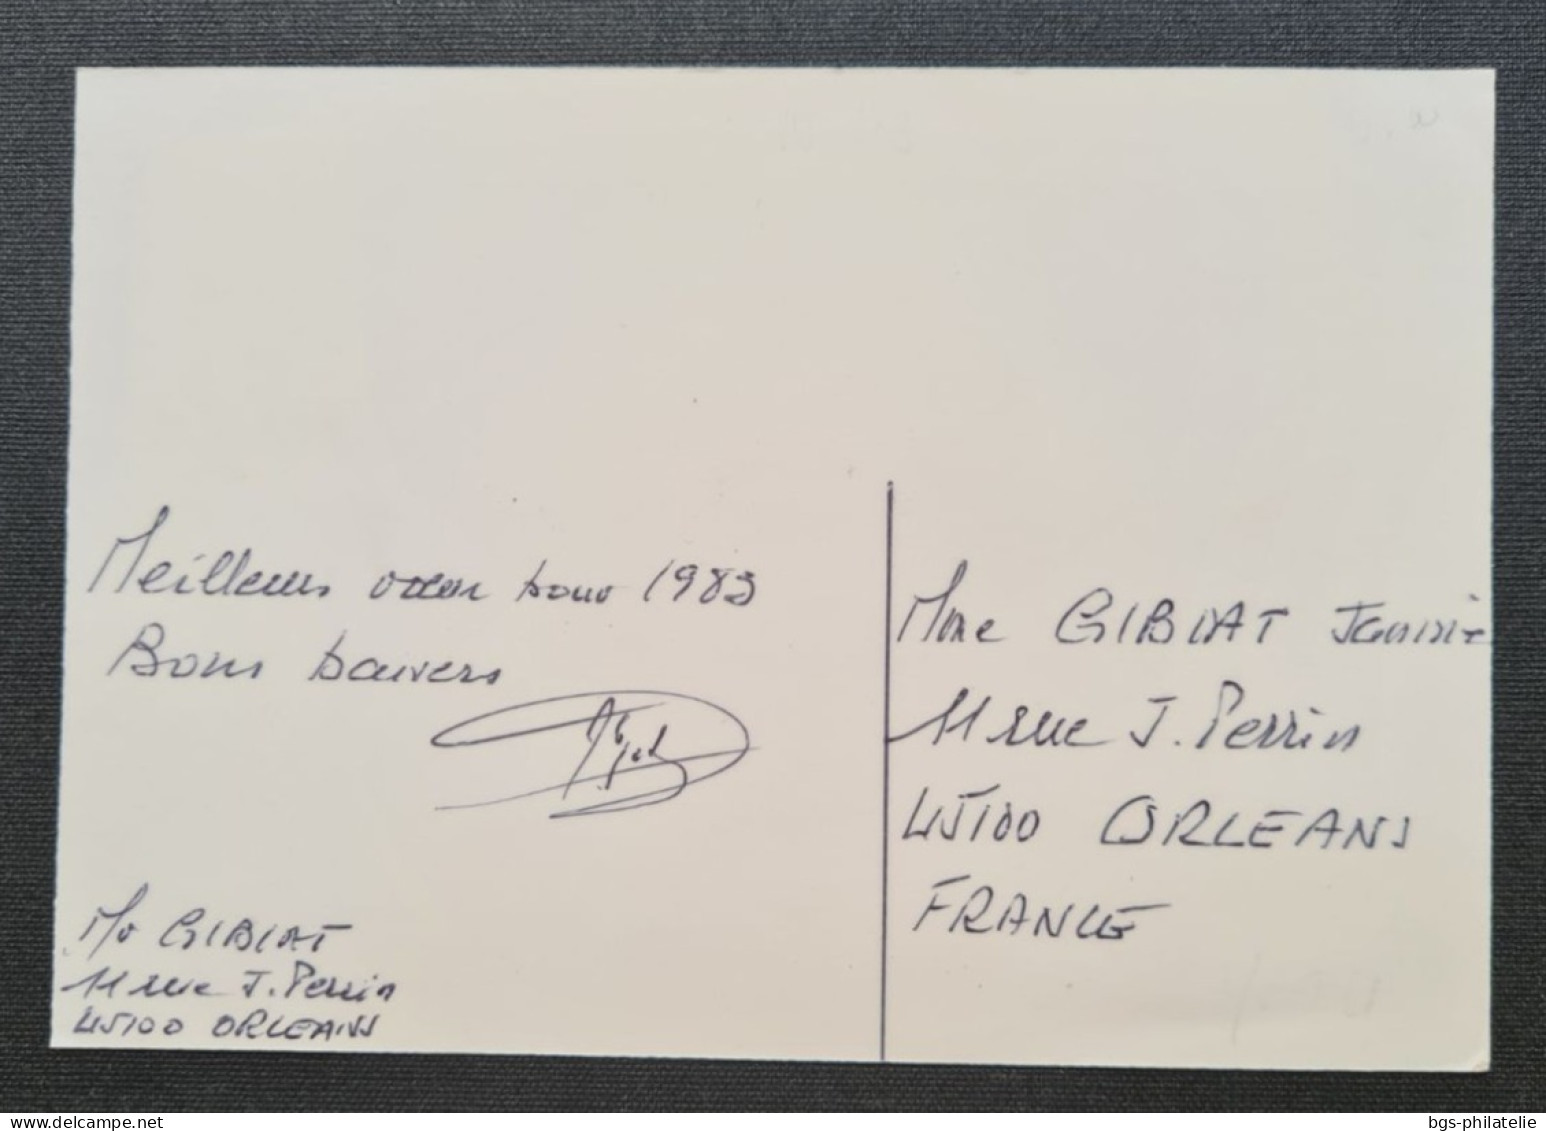 Meilleurs vœux pour 1983
Bons baisers
Mme GIBIAT Jeannine
11 rue J. Perrin
45100 ORLEANS
FRANCE
Mr GIBIAT
11 rue J. Perrin
45100 ORLEANS
bgs-philatelie